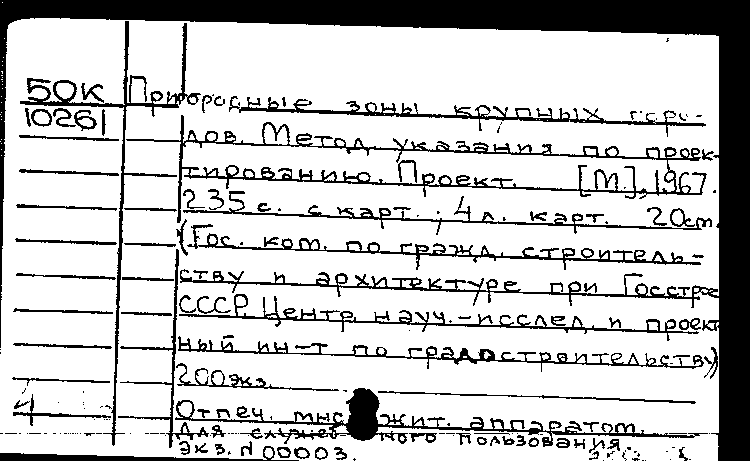 50К Пригородные зоны крупных горо-
10261
дов. Метод. указания по проек-
тированию. Проект. [М.], 1967.
235 с. с карт.; 4 л. карт. 20 см.
(Гос. ком. по гражд. строитель-
ству и архитектуре при Госстрое
СССР. Центр. науч.-исслед. и проект
ный ин-т по градостроительству)
200 экз.
4 Отпеч. множит. аппаратом.
Для служебного пользования.
Экз. N 00003.